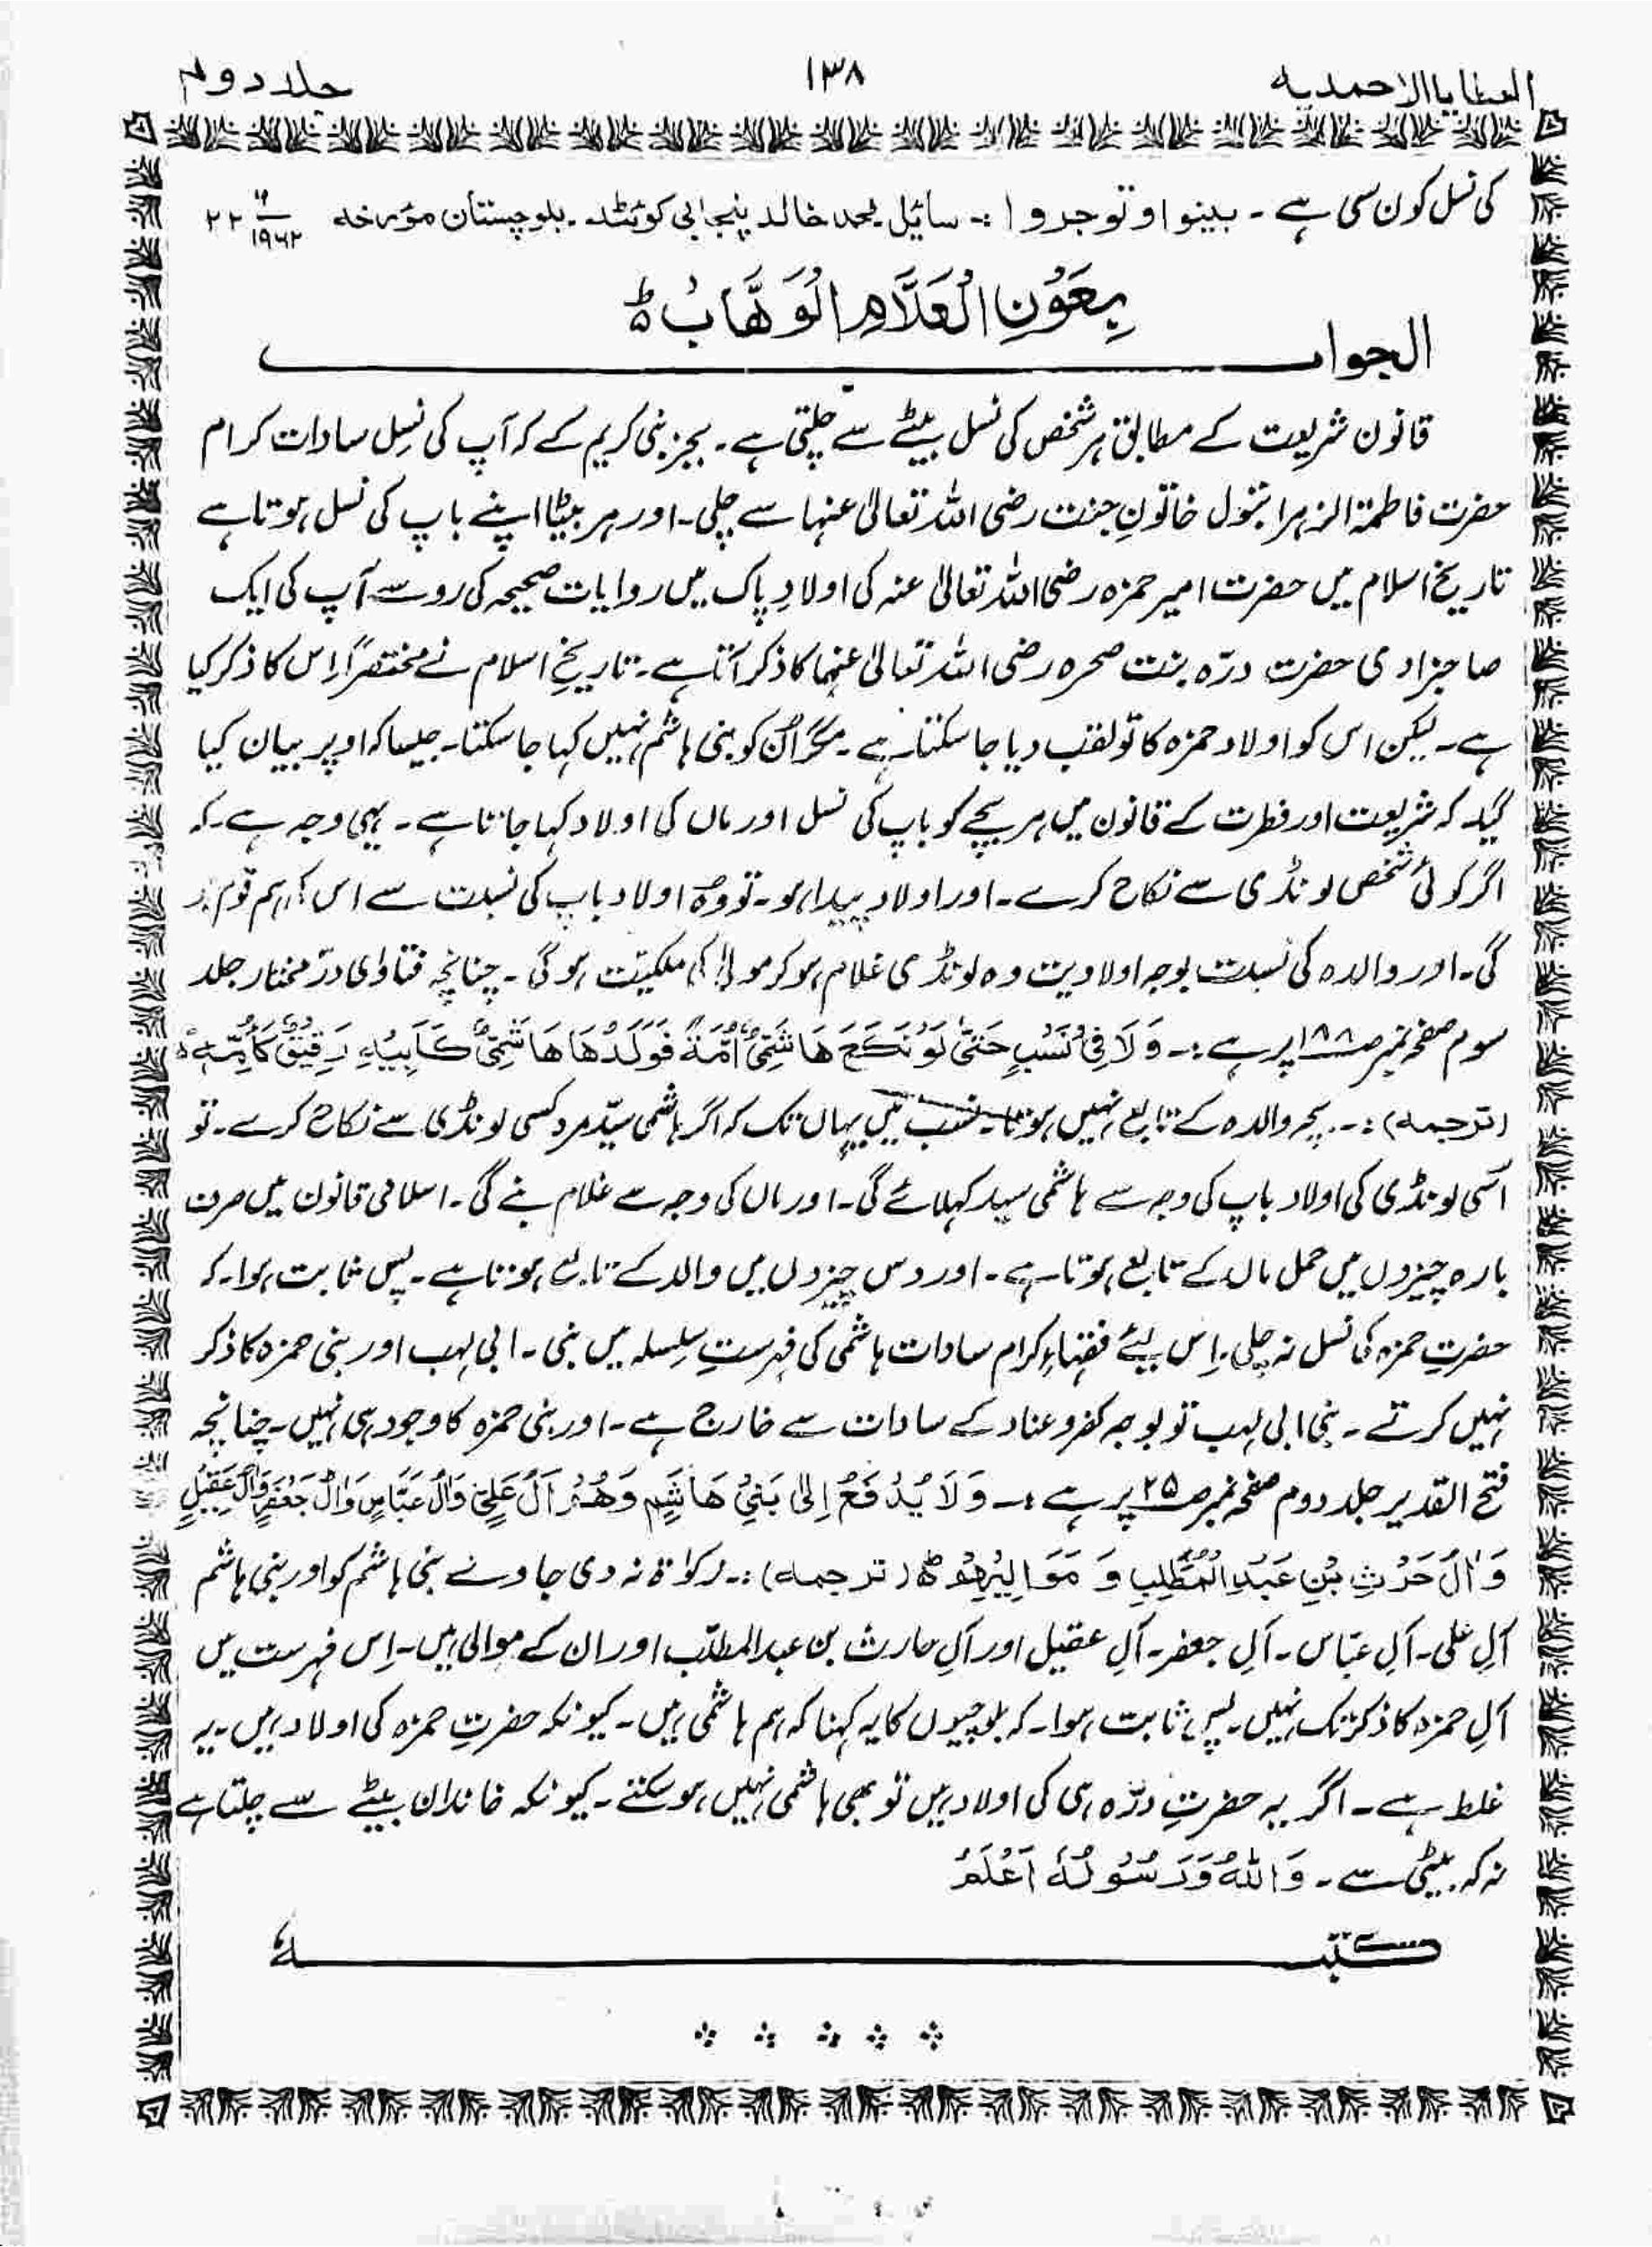 العطایا الاحمدیه ۱۳۸ جلد دوم
کی نسل کون سی ہے ۔ بینوا و توجروا :۔ سائیل محمد خالد پنجابی کوئٹہ ۔ بلوچستان مؤرخہ
بِعَوْنِ الْعَلَّامِ الْوَهَّابْ ط
الجواب
قانون شریعت کے مطابق ہر شخص کی نسل بیٹے سے چلتی ہے ۔ بجز نبی کریم کے کہ آپ کی نسل سادات کرام
حضرت فاطمۃ الزہرا بتول خاتونِ جنت رضی اللہ تعالیٰ عنہا سے چلی ۔ اور ہر بیٹا اپنے باپ کی نسل ہوتا ہے
تاریخ اسلام میں حضرت امیر حمزہ رضی اللہ تعالیٰ عنہ کی اولادِ پاک میں روایات صحیحہ کی رو سے آپ کی ایک
صاحبزادی حضرت درّہ بنت صحرہ رضی اللہ تعالیٰ عنہا کا ذکر آتا ہے ۔ تاریخِ اسلام نے مختصراً اِس کا ذکر کیا
ہے ۔ لیکن اس کو اولاد حمزہ کا تو لقب دیا جا سکتا ہے ۔ مگر اُن کو بنی ہاشم نہیں کہا جا سکتا ۔ جیسا کہ اوپر بیان کیا
گیا کہ شریعت اور فطرت کے قانون میں ہر بچے کو باپ کی نسل اور ماں کی اولاد کہا جاتا ہے ۔ یہی وجہ ہے ۔ کہ
اگر کوئی شخص لونڈی سے نکاح کرے ۔ اور اولاد پیدا ہو ۔ تو وہ اولاد باپ کی نسبت سے اس کی ہم قوم
گی ۔ اور والدہ کی نسبت بوجہ اولادیت وہ لونڈی غلام ہو کر مولیٰ کی ملکیّت ہو گی ۔ چنانچہ فتاوٰی درّ مختار جلد
سوم صفحہ نمبر ۱۸۸ پر ہے :۔ وَلَا فِیْ نَسْبٍ حَتّٰی لَوْ نَکَحَ هَاشَمِیٌّ اُمَّةً فَوَلَدُهَا هَاشَمِیٌّ کَاَبِیْهِ رَقِیْقٌ کَاُمِّهٖ ه
(ترجمہ) :۔ بچہ والدہ کے تابع نہیں ہوتا ۔ نسب میں یہاں تک کہ اگر ہاشمی سیّد مرد کسی لونڈی سے نکاح کرے ۔ تو
اُسی لونڈی کی اولاد باپ کی وجہ سے ہاشمی سید کہلائے گی ۔ اور ماں کی وجہ سے غلام بنے گی ۔ اسلامی قانون میں صرف
بارہ چیزوں میں حمل ماں کے تابع ہوتا ہے ۔ اور دس چیزوں میں والد کے تابع ہوتا ہے ۔ پس ثابت ہوا ۔ کہ
حضرتِ حمزہ کی نسل نہ چلی ۔ اِس لیئے فقہاءِ کرام سادات ہاشمی کی فہرستِ سِلسلہ میں بنی ۔ ابی لہب اور بنی حمزہ کا ذکر
نہیں کرتے ۔ بنی ابی لہب تو بوجہ کفر و عناد کے سادات سے خارج ہے ۔ اور بنی حمزہ کا وجود ہی نہیں ۔ چنانچہ
فتح القدیر جلد دوم صفحہ نمبر ۲۵ پر ہے :۔ وَلَا یُدْفَعُ اِلٰی بَنِیْ هَاشِمٍ وَهُمْ اٰلُ عَلِیٍّ وَاٰلُ عَبَّاسٍ وَاٰلُ جَعْفَرٍ وَاٰلُ عَقِیْلٍ
وَاٰلُ حَرْثِ بْنِ عَبْدِ الْمُطَّلِبِ وَ مَوَالِیْهِمْ ط (ترجمہ) :۔ زکوٰۃ نہ دی جاوے بنی ہاشم کو اور بنی ہاشم
آلِ علی ۔ آلِ عبّاس ۔ آلِ جعفر ۔ آلِ عقیل اور آلِ حارث بن عبد المطلّب اور ان کے موالی ہیں ۔ اِس فہرست میں
آلِ حمزہ کا ذکر تک نہیں ۔ پس ثابت ہوا ۔ کہ بلوچیوں کا یہ کہنا کہ ہم ہاشمی ہیں ۔ کیونکہ حضرتِ حمزہ کی اولاد ہیں ۔ یہ
غلط ہے ۔ اگر یہ حضرتِ درّہ ہی کی اولاد ہیں تو بھی ہاشمی نہیں ہو سکتے ۔ کیونکہ خاندان بیٹے سے چلتا ہے
نہ کہ بیٹی سے ۔ وَاللهُ وَرَسُوْلُهٗ اَعْلَمُ
کتبہٗ